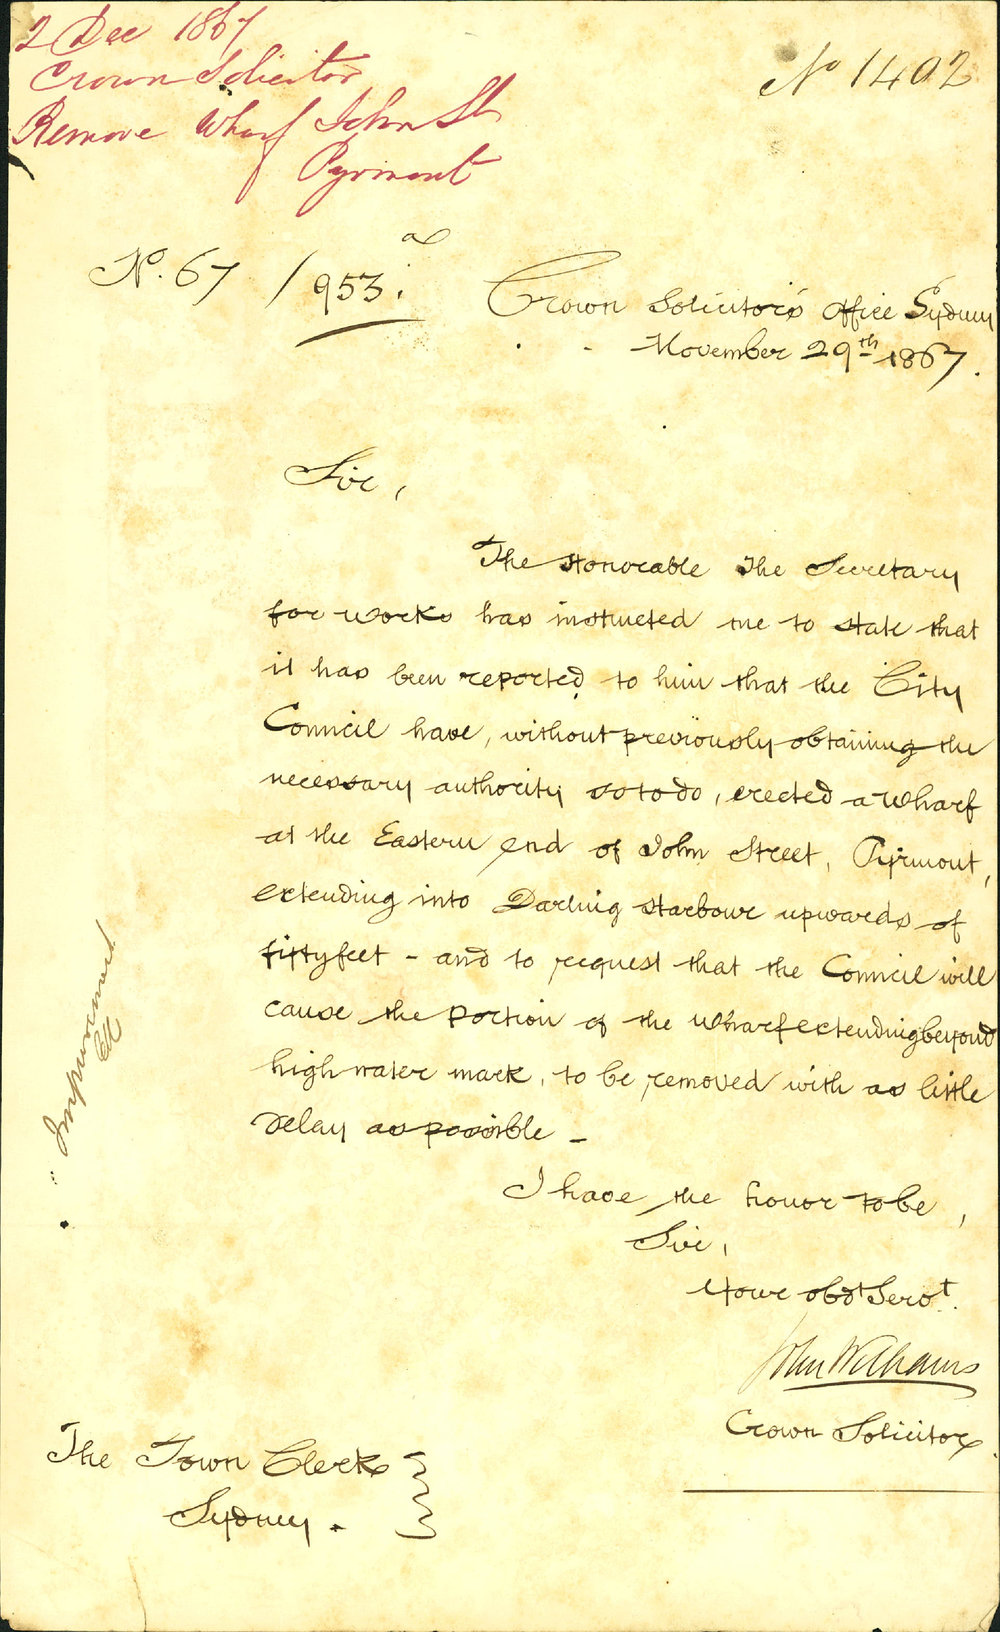 2 Dec 1867
Crown Solicitor
Remove Wharf John St
Pyrmont
No 1402
No. 67 / 953.
Crown Solicitor's Office Sydney
November 29th 1867.
Sir,
The Honorable The Secretary
for Works has instructed me to state that
it has been reported to him that the City
Council have, without previously obtaining the
necessary authority so to do, erected a Wharf
at the Eastern end of John Street, Pyrmont,
extending into Darling Harbour upwards of
fifty feet - and to request that the Council will
cause the portion of the Wharf extending beyond
high water mark, to be removed with as little
delay as possible -
I have the honor to be,
Sir,
Your obdt Servt.
John Williams
Crown Solicitor
The Town Clerk
Sydney.
Improvement